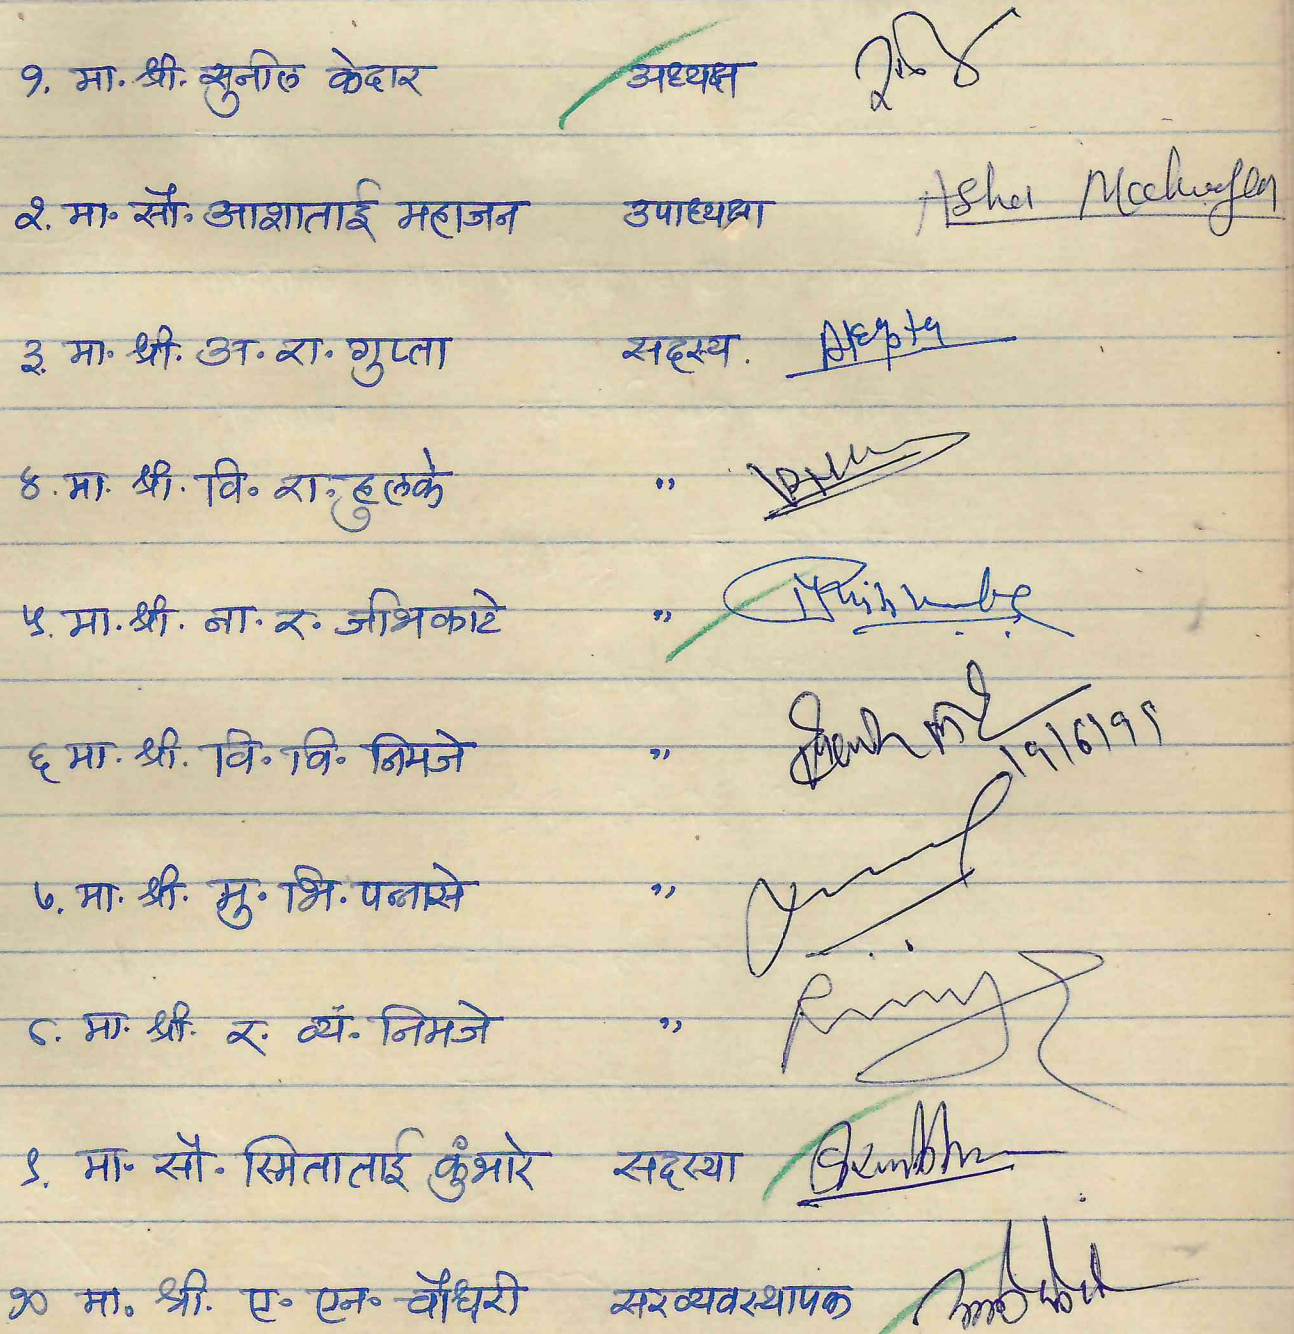 १. मा. श्री. सुनील केदार अध्यक्ष
२. मा. सौ. आशाताई महाजन उपाध्यक्षा Asha
३. मा. श्री. अ. रा. गुप्ता सदस्य. ARGupta
४. मा. श्री. वि. रा. हुलके "
५. मा. श्री. ना. र. जिभकाटे "
६ मा. श्री. वि. वि. निमजे " 19/6/99
७. मा. श्री. मु. भि. पन्नासे "
८. मा. श्री. र. व्यं. निमजे "
९. मा. सौ. स्मिताताई कुंभारे सदस्या
१० मा. श्री. ए. एन. चौधरी सरव्यवस्थापक